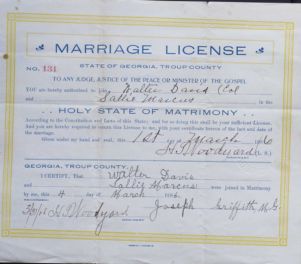 MARRIAGE LICENSE
No. 131
STATE OF GEORGIA, TROUP COUNTY
TO ANY JUDGE, JUSTICE OF THE PEACE OR MINISTER OF THE GOSPEL
YOU are hereby authorized to join Walter Davis (Col
and Sallie Marcus in the
HOLY STATE OF MATRIMONY
According to the Constitution and Laws of this State; and for so doing this shall be your sufficient License.
And you are hereby required to return this License to me, with your certificate hereon of the fact and date
of the marriage.
Given under my hand and seal, this 1st day March
H.P. Woodyard (L. S.)
GEORGIA, TROUP COUNTY:
I CERTIFY, That Walter Davis
and Sallie Marcus were joined in Matrimony
by me, this 4 day of March
H.P. Woodyard Joseph Griffith, M.G